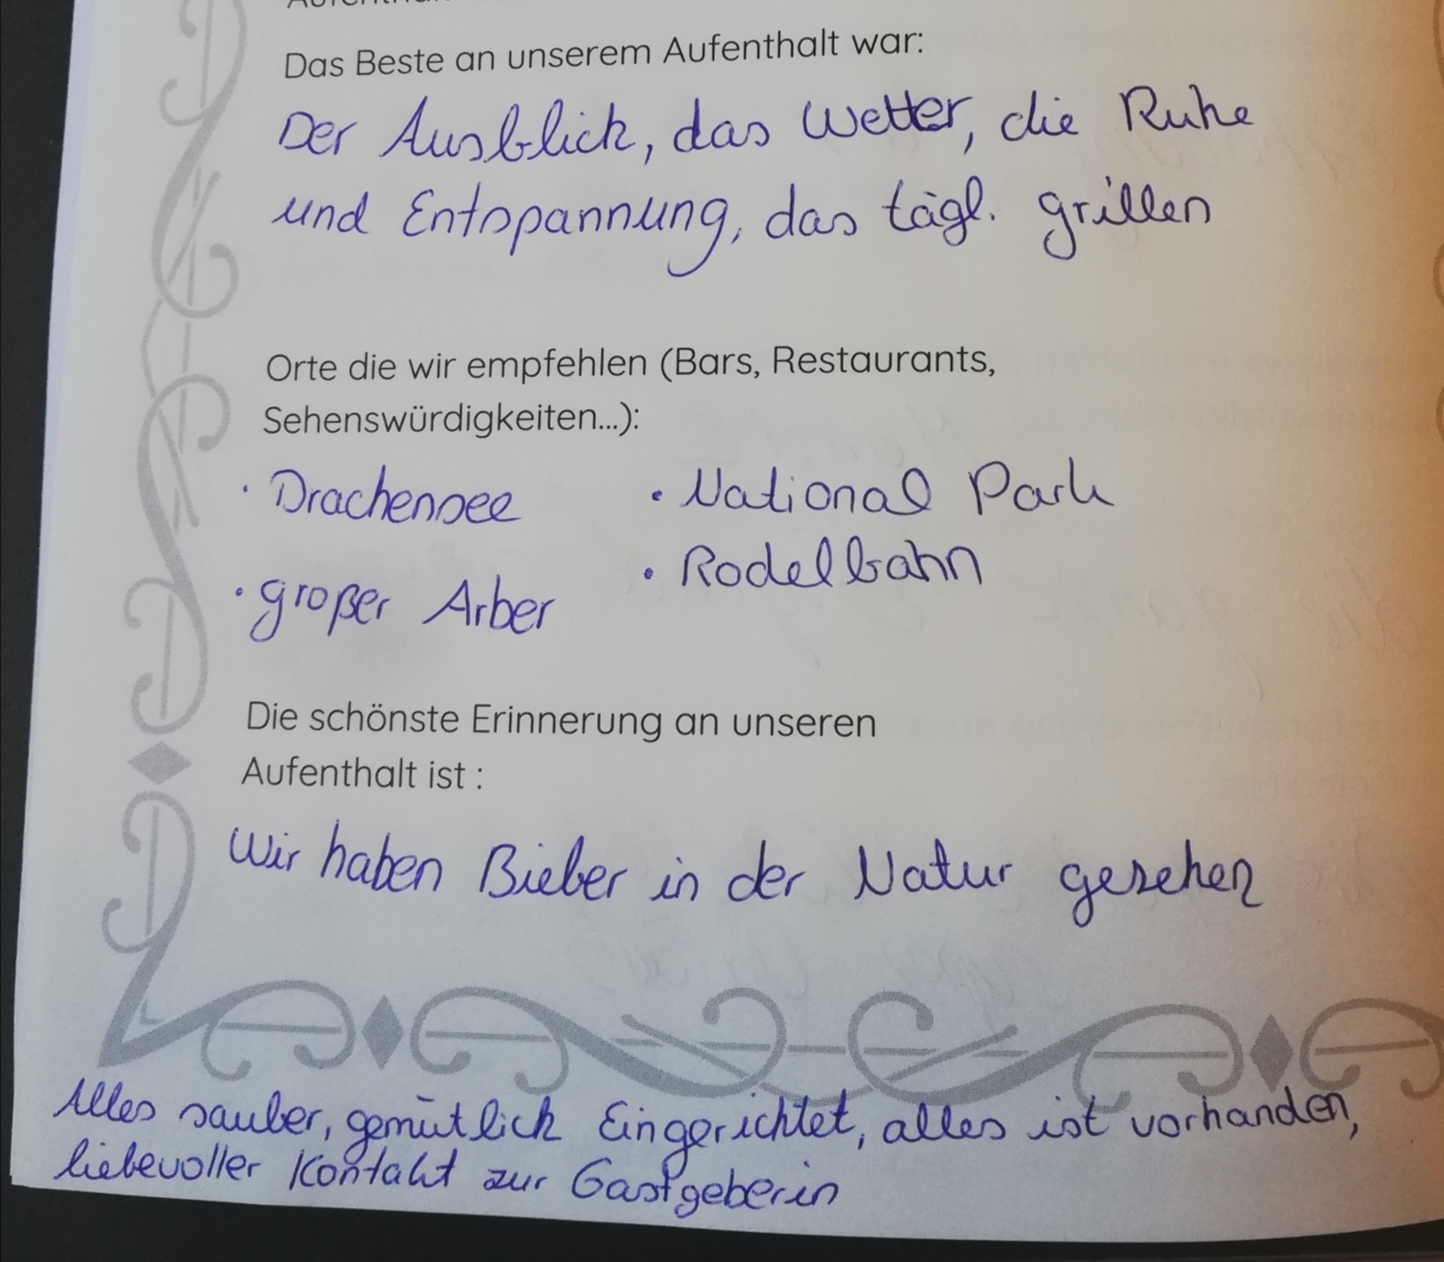 Das Beste an unserem Aufenthalt war:
Der Ausblick, das Wetter, die Ruhe
und Entspannung, das tägl. grillen
Orte die wir empfehlen (Bars, Restaurants,
Sehenswürdigkeiten...):
· Drachensee
· National Park
· Rodelbahn
· großer Arber
Die schönste Erinnerung an unseren
Aufenthalt ist :
Wir haben Bieber in der Natur gesehen
Alles sauber, gemütlich Eingerichtet, alles ist vorhanden,
liebevoller Kontakt zur Gastgeberin